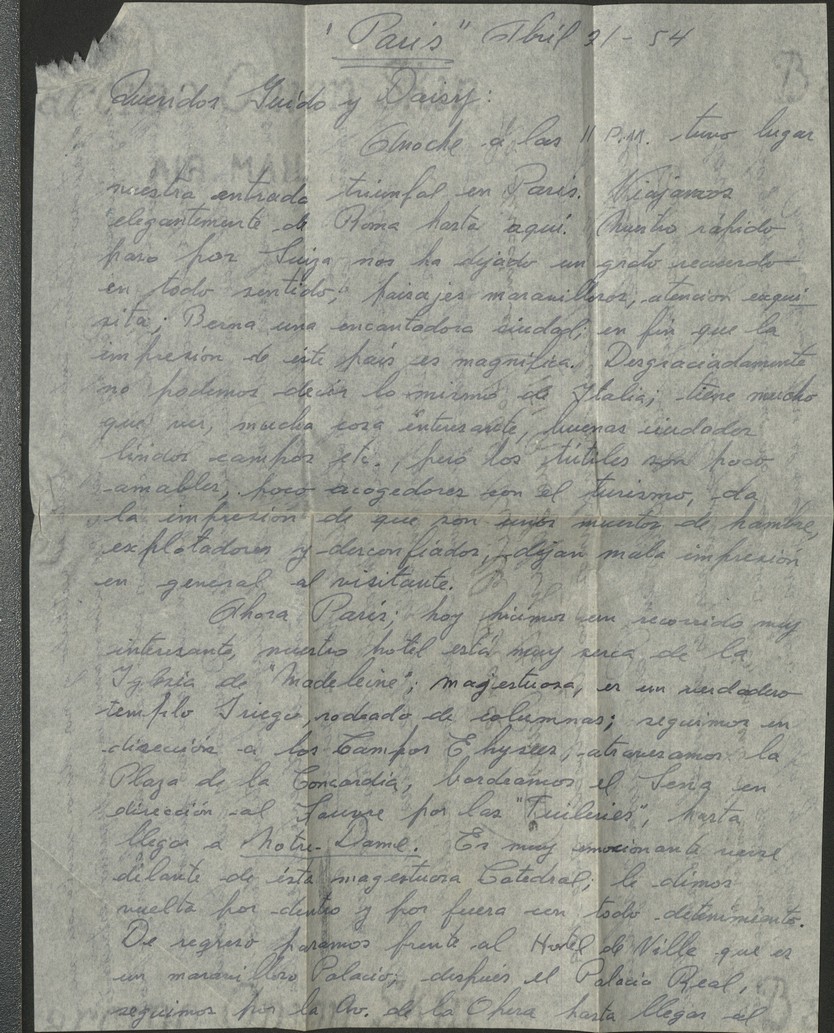 "Paris" Abril 21-54
Queridos Guido y Daisy:
Anoche a las 11 P.M. tuvo lugar
nuestra entrada triunfal en Paris. Viajamos
elegantemente de Roma hasta aquí. Nuestro rápido
paso por Suiza nos ha dejado un grato recuerdo
en todo sentido; paisajes maravillosos, atención exqui-
sita; Berna una encantadora ciudad; en fin que la
impresión de éste país es magnífica. Desgraciadamente
no podemos decir lo mismo de Italia; tiene mucho
que ver, mucha cosa interesante, buenas ciudades
lindos campos etc., pero los son poco
amables, poco acogedores con el turismo, da
la impresión de que son unos muertos de hambre,
explotadores y desconfiados, dejan mala impresión
en general al visitante.
Ahora Paris; hoy hicimos un recorrido muy
interesante, nuestro hotel está muy serca de la
Iglesia de "Madeleine"; magestuosa, es un verdadero
templo Griego, rodeado de columnas; seguimos en
dirección a los Campos Elyseos, atravesamos la
Plaza de la Concordia, bordeamos el Sena en
dirección al Louvre por las "Tuileries", hasta
llegar a Notre-Dame. Es muy emocionante verse
delante de ésta magestuosa Catedral; le dimos
vuelta por dentro y por fuera con todo detenimiento.
De regreso paramos frente al Hotel de Ville que es
un maravilloso Palacio; después el Palacio Real,
seguimos por la Av. de la Opera hasta llegar al